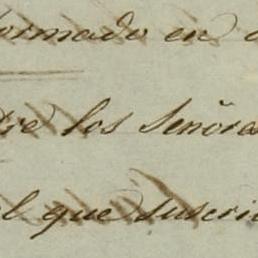 formado en
tre los Señores
el que suscri